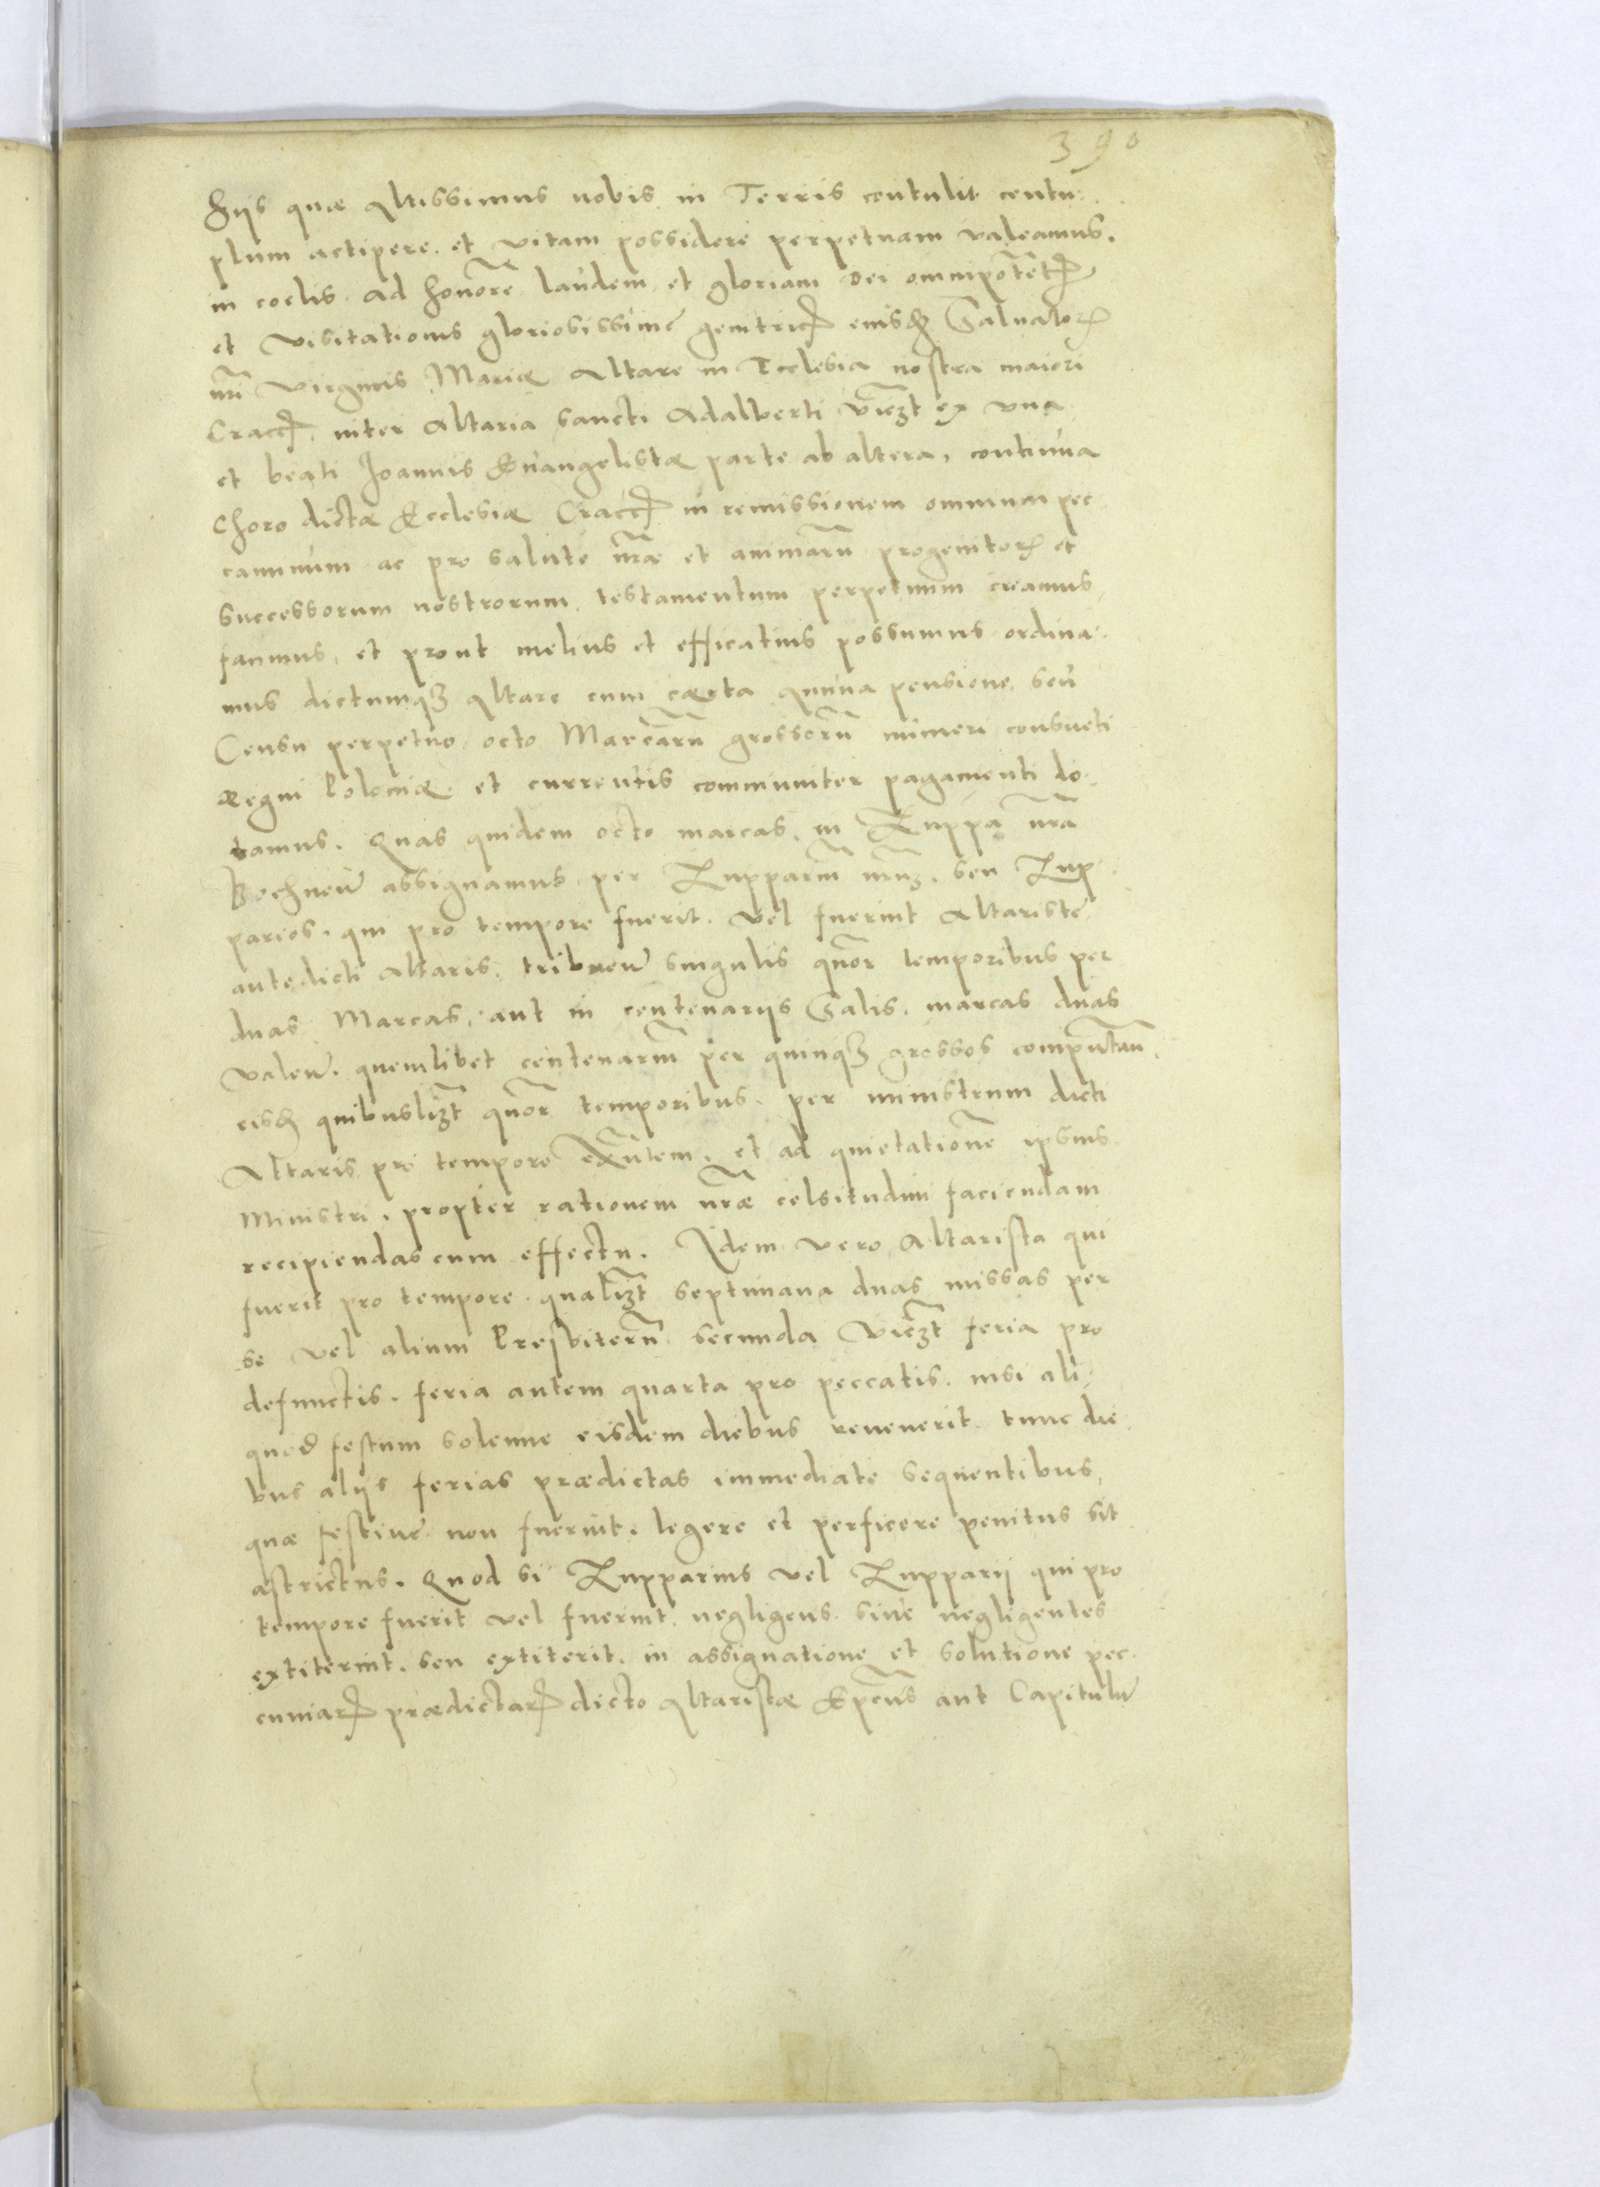 390
hijs quæ Altissimus nobis in Terris contulit centu
plum accipere et vitam possidere perpetuam valeamus.
in coelis. Ad honorē laudem et gloriam Dei omnipotētꝭ
et Visitationis gloriosissimę genitricꝭ eiusđ Saluatorꝭ
nr̄i Virginis Mariæ Altare in Ecclesia nostra maiori
Craccꝭ. inter Altaria sancti Adalberti vicꝫt ex vna
et beati Joannis Euangelistæ parte ab altera, continua
Choro dictæ Ecclesiæ Craccꝭ in remissionem omnium pec
caminum ac pro salute nr̄æ et animarū progenitorꝝ et
successorum nostrorum. testamentum perpetuum creamus,
facimus, et prout melius et efficatius possumus ordina
mus dictumqꝫ Altare cum certa annua pensione seu
Censu perpetuo octo Marcarū grossorū numeri consueti
Regni Poloniæ et currentis communiter pagamenti do
tamus. Quas quidem octo marcas in Zuppa nr̄a
Bochneñ assignamus per Zuppariū nr̄m̄. seu Zup
parios. qui pro tempore fuerit. vel fuerint Altaristę
antedicti Altaris. tribueñ singulis quōr temporibus per
duas Marcas, aut in centenarijs Salis. marcas duas
valeñ. quemlibet centenariū per quinqꝫ grossos computań
eisđ quibuslibꝫt quōr temporibus. per ministrum dicti
Altaris pro tempore exn̄tem. et ad quietationē ipsius
Ministri. propter rationem nr̄æ celsitudini faciendam
recipiendas cum effectu. Idem vero Altarista qui
fuerit pro tempore. qualibꝫt septimana duas missas per
se vel alium Presbiterū secunda vicꝫt feria pro
defunctis. feria autem quarta pro peccatis. nisi ali
quod festum solenne eisdem diebus euenerit. tunc die
bus alijs ferias prædictas immediate sequentibus,
quæ festiuę non fuerint. legere et perficere penitus sit
astrictus. Quod si Zupparius vel Zupparij qui pro
tempore fuerit vel fuerint. negligens siue negligentes
extiterint. seu extiterit. in assignatione et solutione pec
cuniarꝝ prædictarꝝ dicto Altaristæ Ep̄cus aut Capitulū